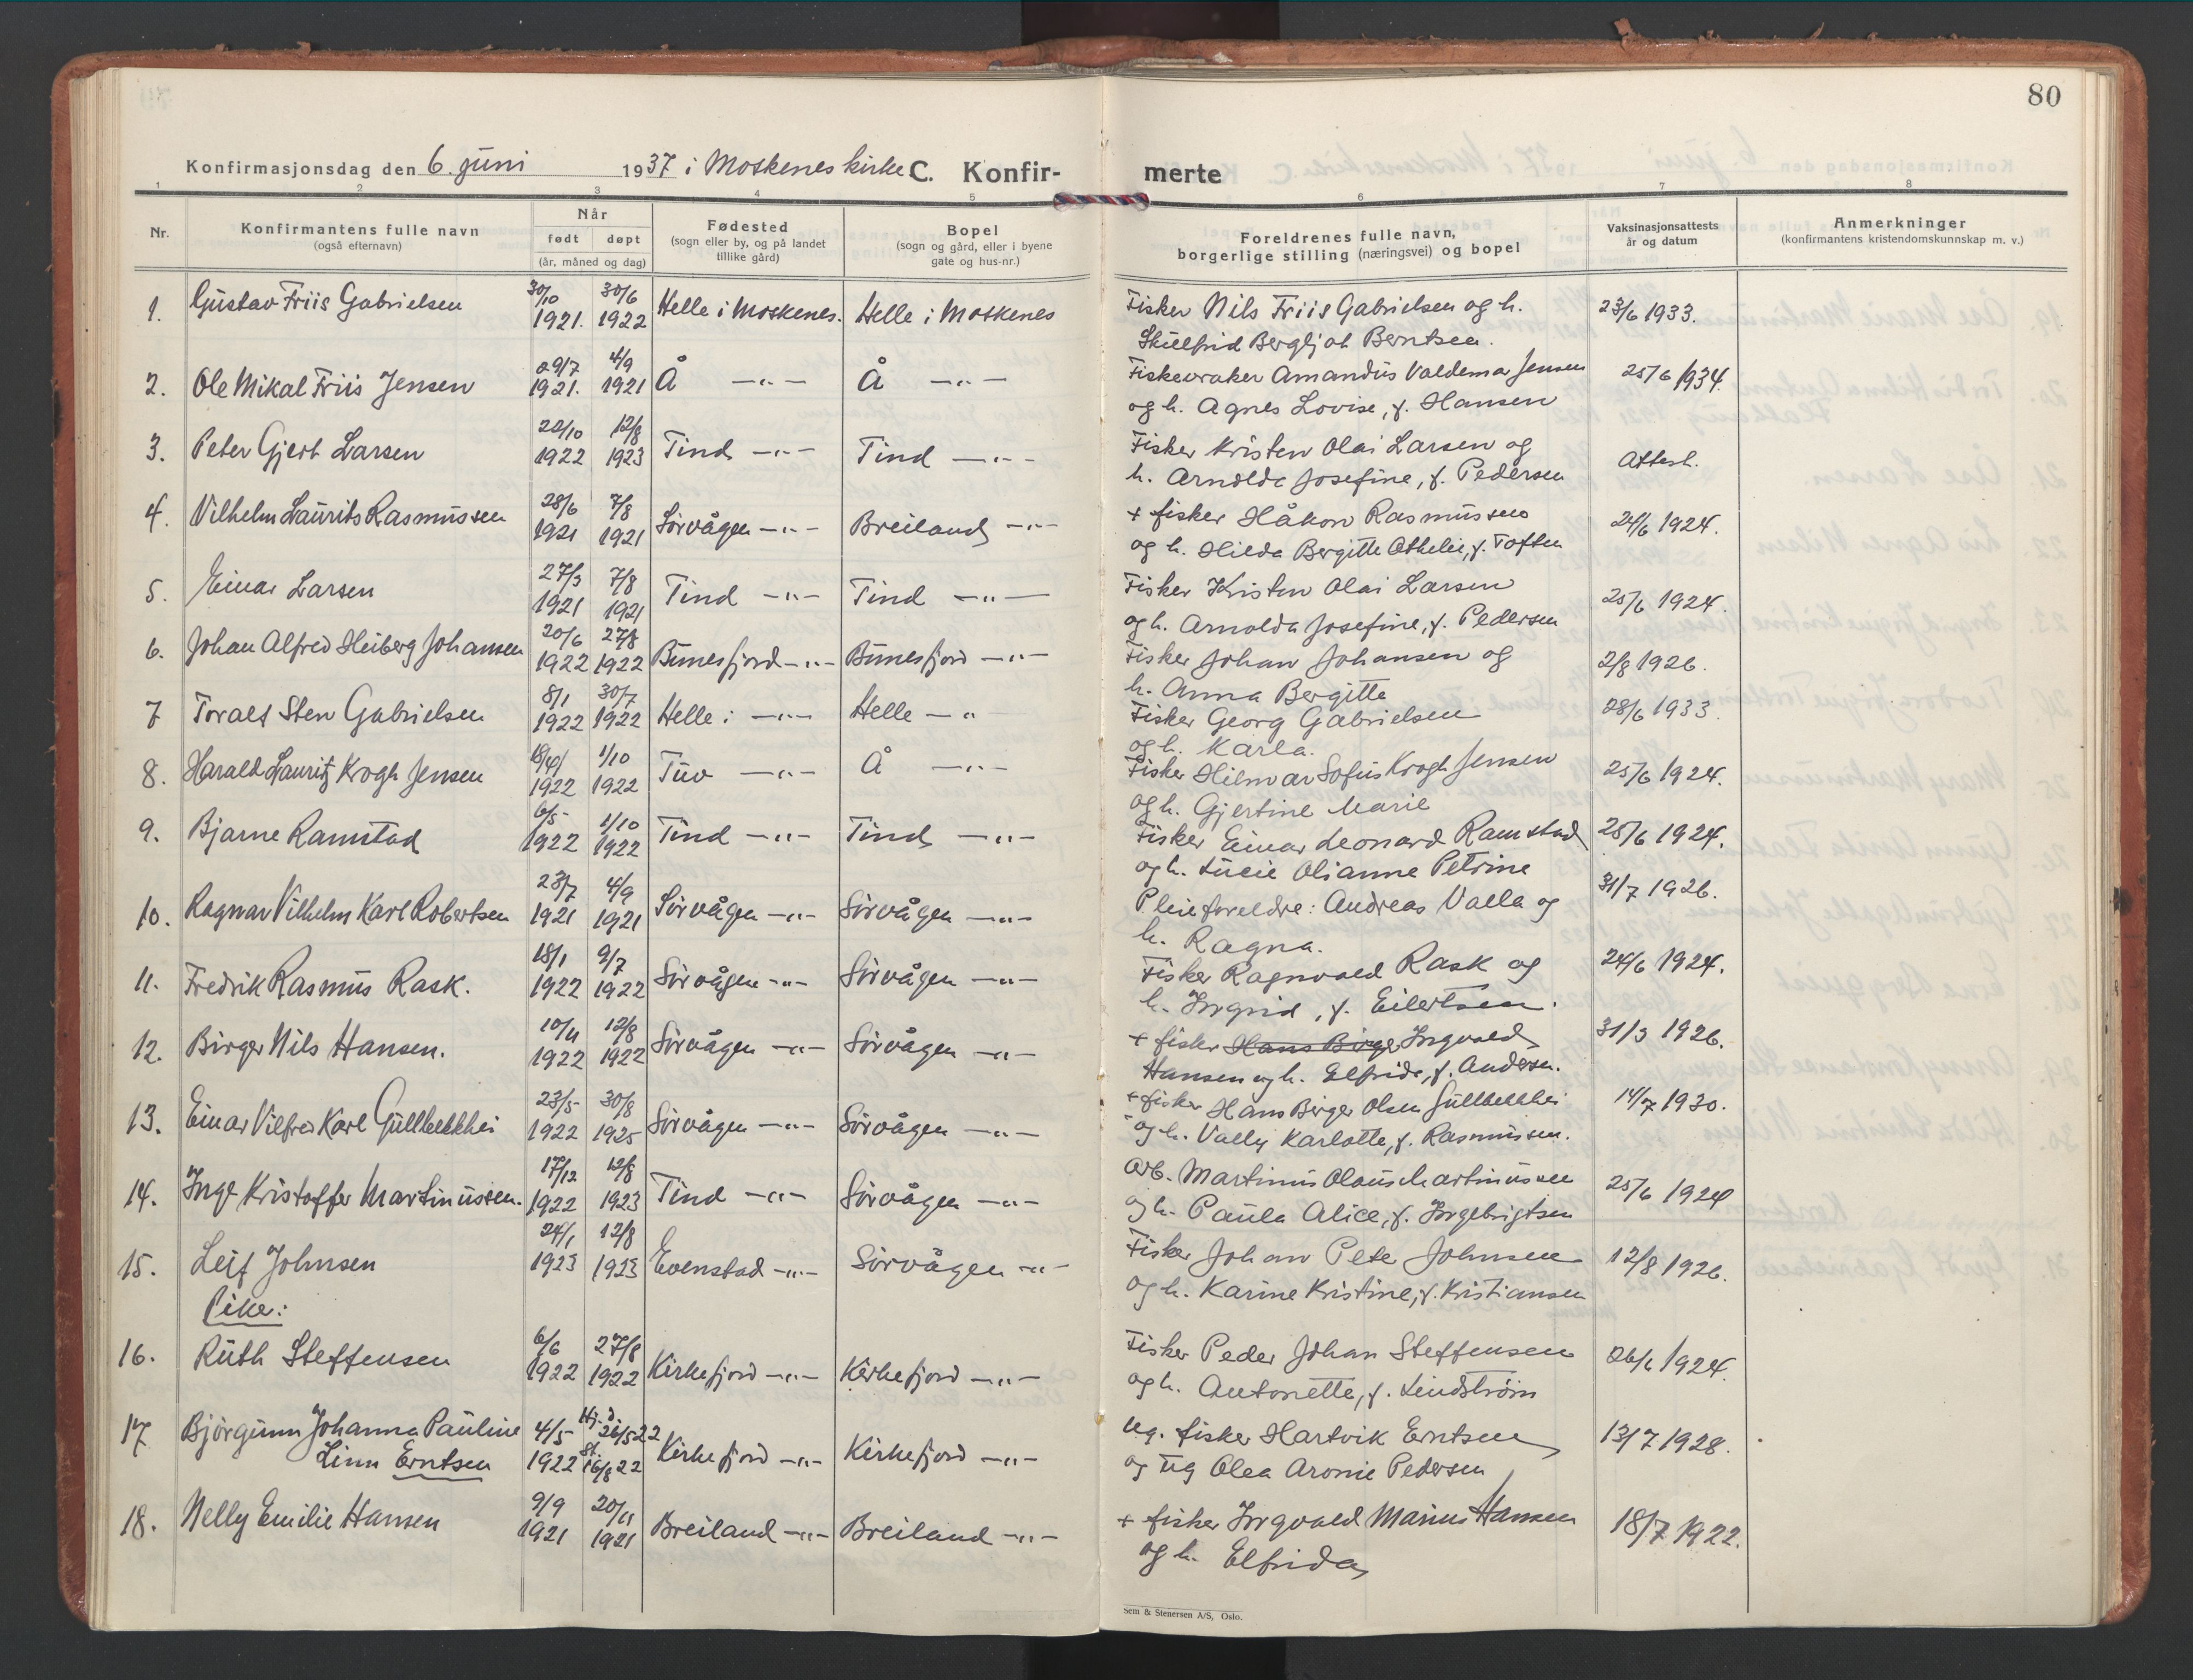 80
Konfirmasjonsdag den 6. juni 1937 i Moskenes kirke C. Konfirmerte
1 2 3 4 5 6 7 8
Nr.
Konfirmantens fulle navn
(også efternavn)
Når
født døpt
(år, måned og dag)
Fødested
(sogn eller by, og på landet
tillike gård)
Bopel
(sogn og gård, eller i byene
gate og hus-nr.)
Foreldrenes fulle navn,
borgerlige stilling (næringsvei) og bopel
Vaksinasjonsattests
år og datum
Anmerkninger
(konfirmantens kristendomskunnskap m. v.)
1. Gustav Friis Gabrielsen 30/10 1921. 30/6 1922 Helle i Moskenes. Helle i Moskenes Fisker Nils Friis Gabrielsen og h. 23/6 1933.
Bergljot Berntsen.
2. Ole Mikal Friis Jensen 29/7 1921. 4/9 1921 Å —"— Å —"— Fiskevraker Amandus Valdemar Jensen 25/6 1934.
og h. Agnes Lovise, f. Hansen
3. Peter Gjert Larsen 22/10 1922 12/8 1923 Tind —"— Tind —"— Fisker Kristen Olai Larsen og Attest.
h. Arnolda Josefine, f. Pedersen
4. Vilhelm Laurits Rasmussen 28/6 1921 7/8 1921 Sørvågen —"— Breiland —"— + fisker Håkon Rasmussen 24/6 1924.
og h. Hilda Bergitte Athelie, f. Toften
5. Einar Larsen 27/3 1921 7/8 1921 Tind —"— Tind —"— Fisker Kristen Olai Larsen 25/6 1924.
og h. Arnolda Josefine, f. Pedersen
6. Johan Alfred Heiberg Johansen 20/6 1922 27/8 1922 Bunesfjord —"— Bunesfjord —"— Fisker Johan Johansen og 2/8 1926.
h. Anna Bergitte
7 Toralf Sten Gabrielsen 8/1 1922 30/7 1922 Helle i —"— Helle —" Fisker Georg Gabrielsen 28/6 1933.
og h. Karla.
8. Harald Lauritz Krogh Jensen 18/4 1922 1/10 1922 Tuv —"— Å —"— Fisker Hilmar Sofus Krogh Jensen 25/6 1924.
og h. Gjertine Marie
9. Bjarne Ramstad 6/5 1922 1/10 1922 Tind —"— Tind —"— Fisker Einar Leonard Ramstad 25/6 1924.
og h. Lucie Olianne Petrine
10. Ragnar Vilhelm Karl Robertsen 23/7 1921 4/9 1921 Sørvågen —"— Sørvågen —"— Pleieforeldre: Andreas Valla og 31/7 1926.
h. Ragna.
11. Fredrik Rasmus Rask. 18/1 1922 9/7 1922 Sørvågen —"— Sørvågen —"— Fisker Ragnvald Rask og 24/6 1924.
h. Ingrid, f. Eilertsen.
12. Birger Nils Hansen. 10/4 1922 12/8 1922 Sørvågen —"— Sørvågen —"— + fisker Hans Birger Ingvald 31/3 1926.
Hansen og h. Elfrida, f. Andersen.
13. Einar Vilfred Karl Gullbekkhei 23/5 1922 30/8 1925 Sørvågen —"— Sørvågen —"— + fisker Hans Birger Olsen Gullbekkhei 14/7 1930.
og h. Vally Karlotte, f. Rasmussen.
14. Inge Kristoffer Martinussen. 17/12 1922 12/8 1923 Tind —"— Sørvågen —"— Arb. Martinus Olaus Martinussen 25/6 1924
og h. Paula Alice, f. Ingebrigtsen
15. Leif Johnsen 24/1 1923 12/8 1923 Evenstad —"— Sørvågen —"— Fisker Johan Peter Johnsen 12/8 1926.
og h. Karine Kristine, f. Kristiansen
Piker:
16. Ruth Steffensen 6/6 1922 27/8 1922 Kirkefjord —"— Kirkefjord —"— Fisker Peder Johan Steffensen 26/6 1924.
og h. Antonette, f. Lindstrøm
17 Bjørgunn Johanna Pauline 4/5 1922 Hj. d. 26/5 22 Kirkefjord —"— Kirkefjord —"— Ug. fisker Hartvik Erntsen 13/7 1928.
Linn Erntsen St. 16/8 22 og ug Olea Aronie Pedersen
18. Nelly Emilie Hansen 9/9 1921 20/11 1921 Breiland —"— Breiland —"— + fisker Ingvald Marius Hansen 18/7 1922.
og h. Elfrida
Sem & Stenersen A/S, Oslo.